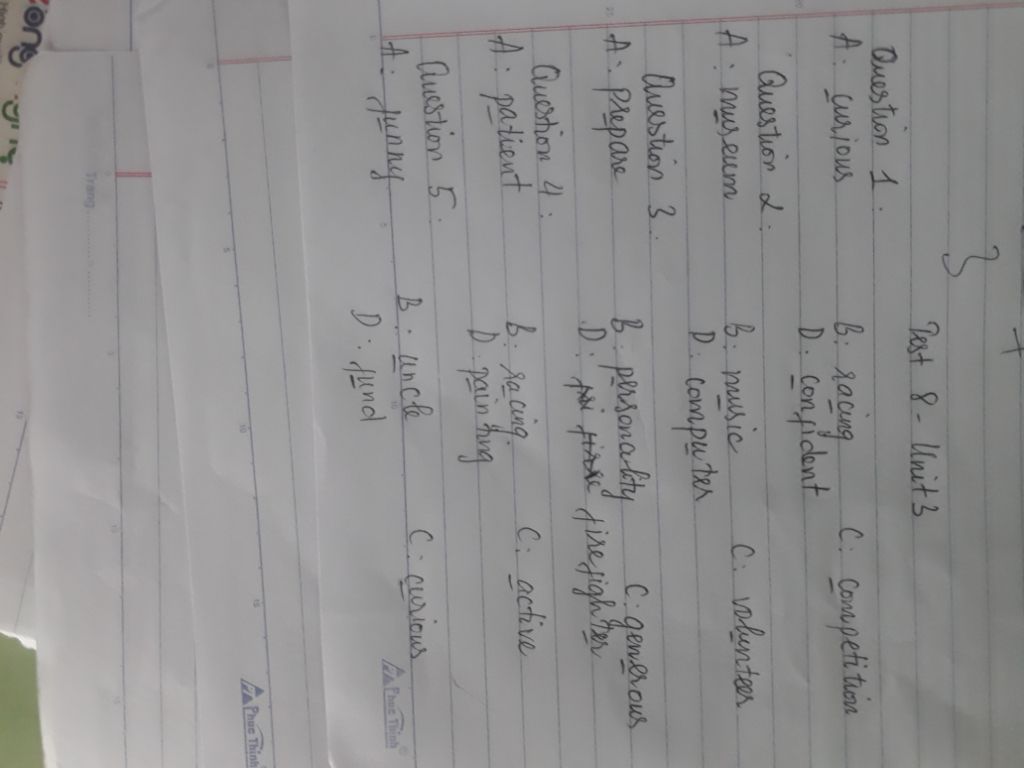 Test 8 - Unit 3
Question 1.
A. curious B. racing C. competition
D. confident
Question 2.
A. museum B. music C. volunteer
D. computer
Question 3.
A. prepare B. personality C. generous
D. firefighter
Question 4.
A. patient B. racing C. active
D. painting
Question 5.
A. funny B. uncle C. curious
D. fund
Phuc Thinh
Phuc Thinh
Trang
zong